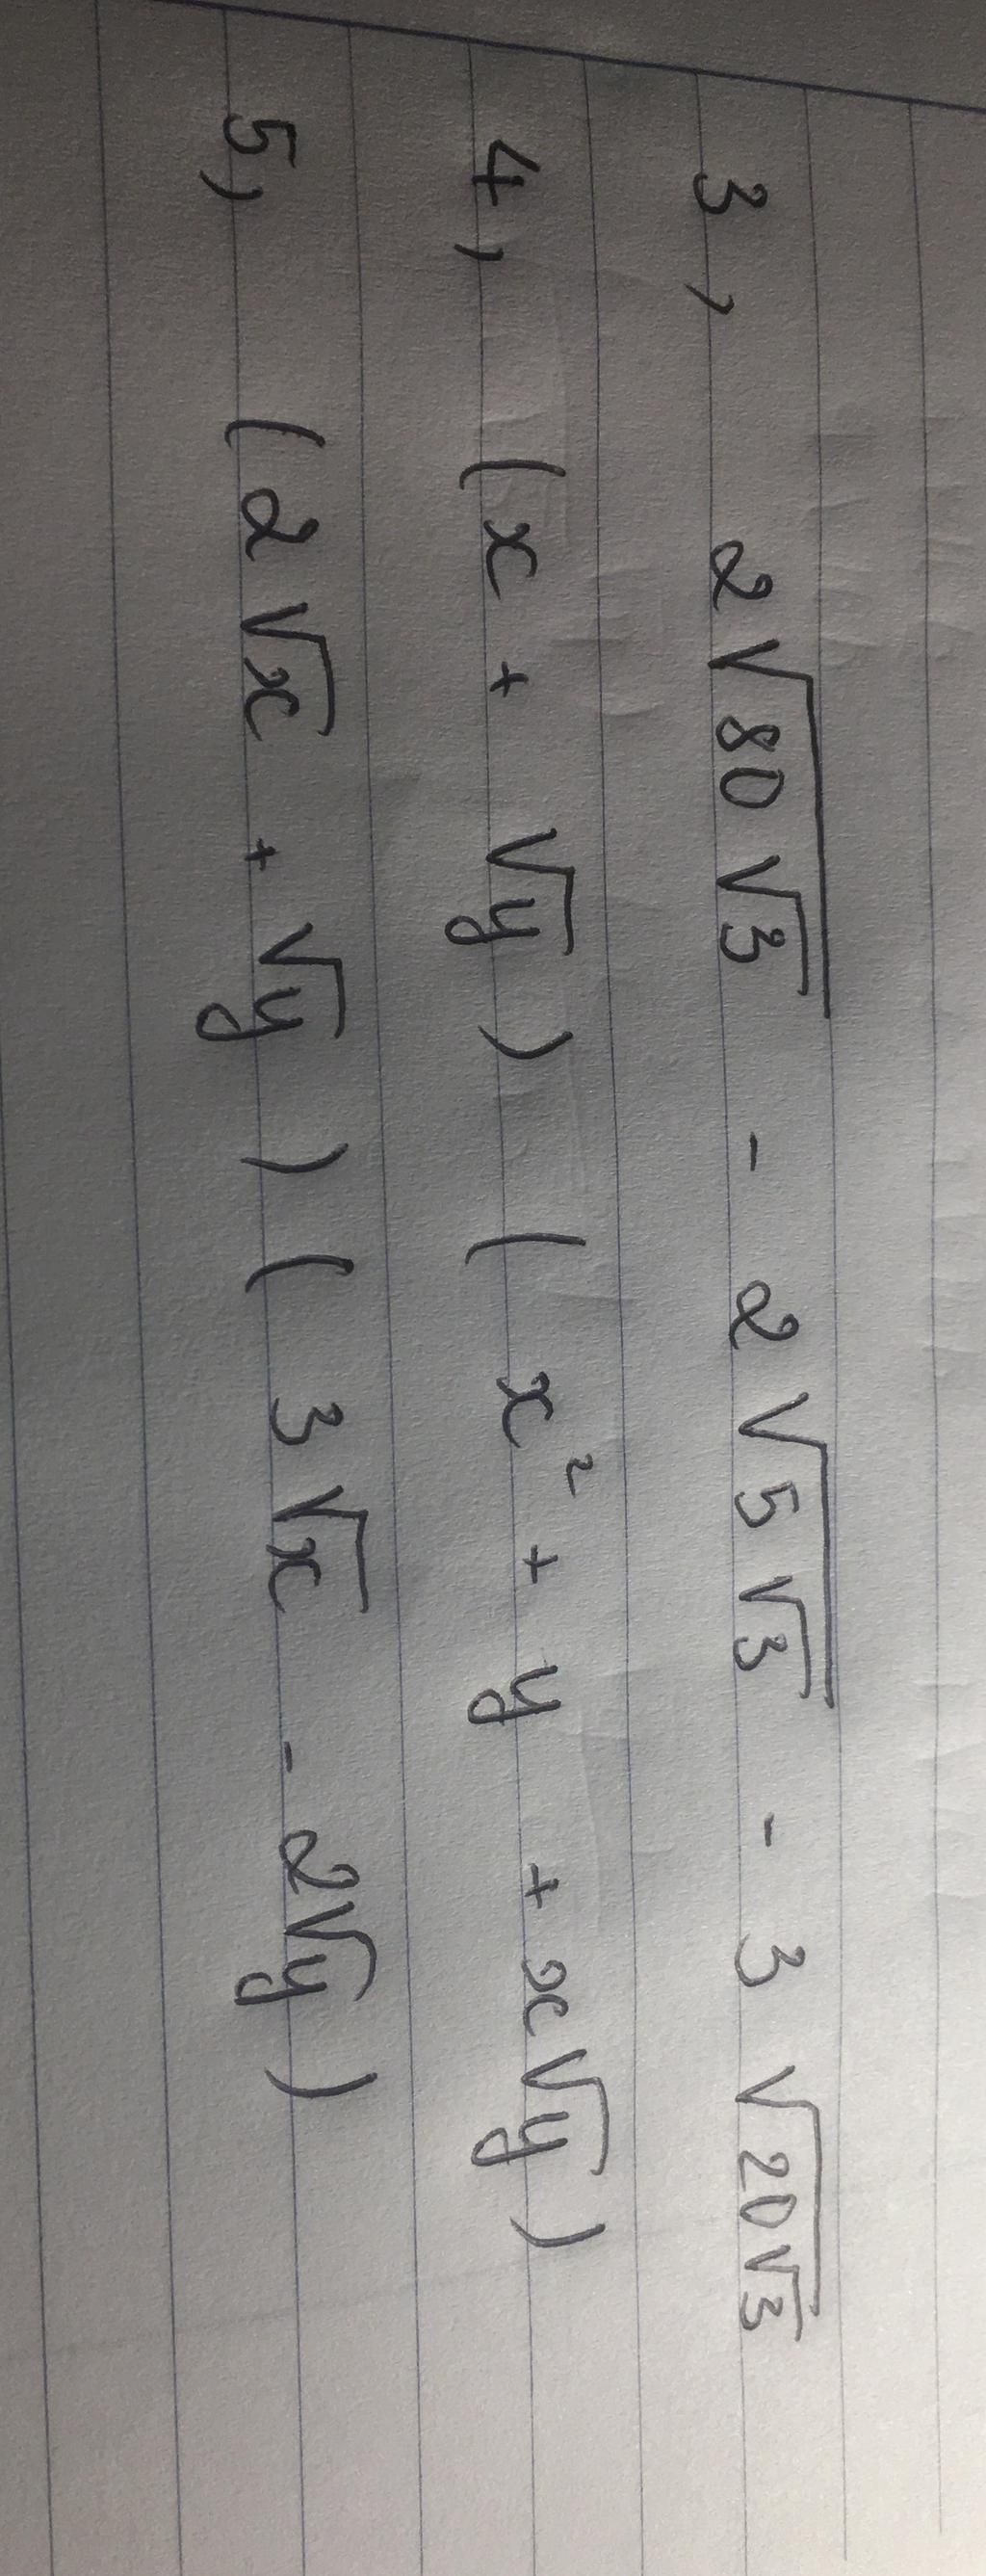 3, 2√(80√3) - 2√(5√3) - 3√(20√3)
4, (x + √y) (x² + y + x√y)
5, (2√x + √y) (3√x - 2√y)